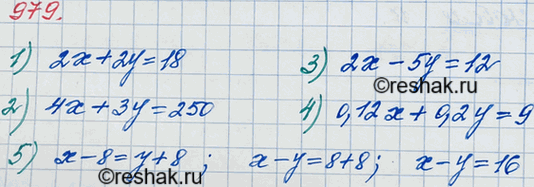 979.
1) 2x+2y=18
3) 2x-5y=12
©reshak.ru
2) 4x+3y=250
4) 0,12x+0,2y=9
©reshak.ru
5) x-8=y+8; x-y=8+8; x-y=16
©reshak.ru